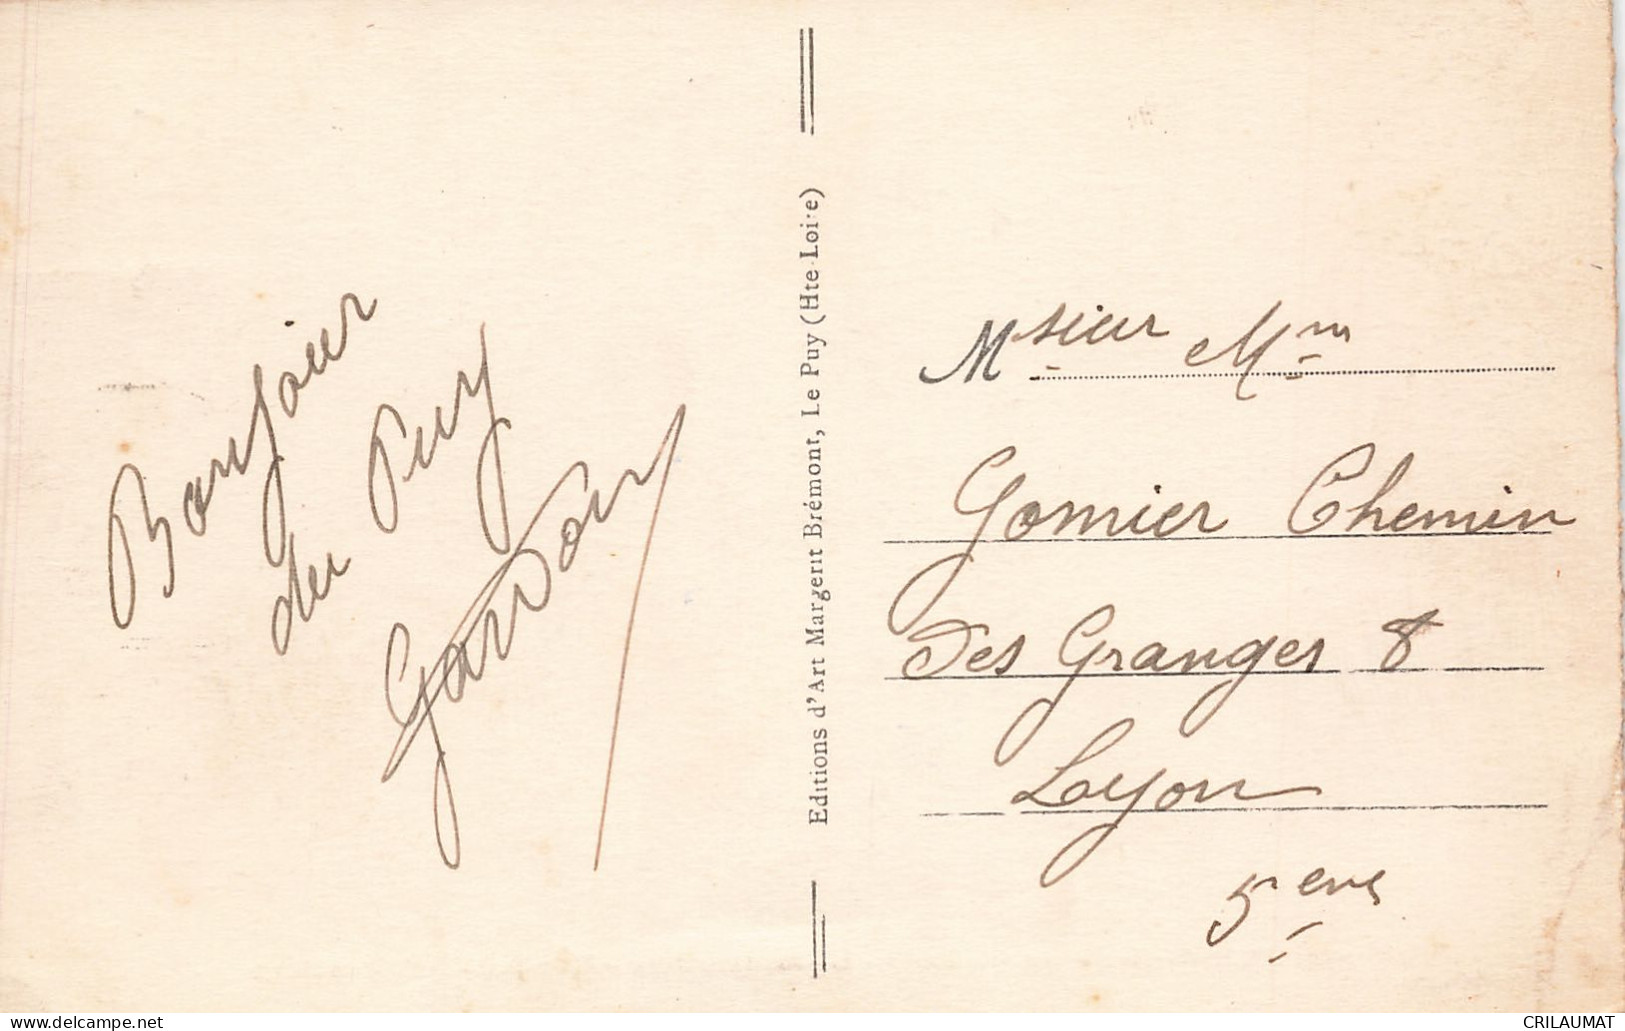 Bonjour
du Puy
Editions d'Art Margerit Brémont, Le Puy (Hte-Loire)
Msieur Mm
Gomier Chemin
Des Granges 8
Lyon
5eme
www.delcampe.net
CRILAUMAT